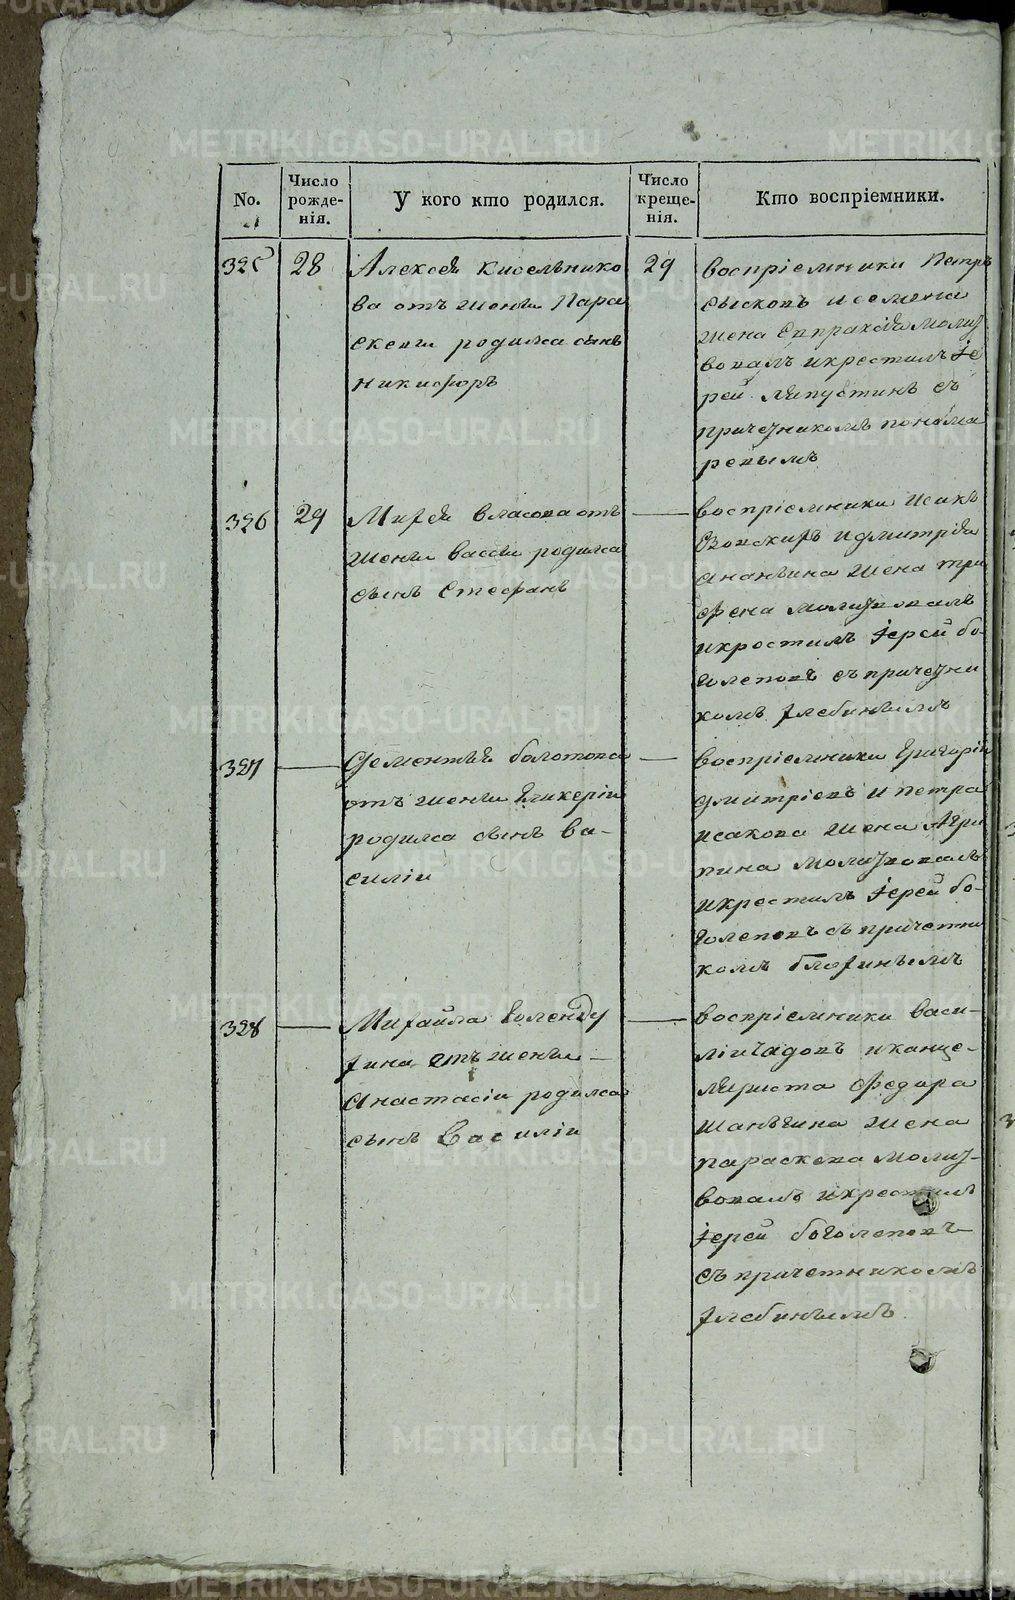 METRIKI.GASO-URAL.RU
No.
Число рожде-нія.
У кого кто родился.
Число креще-нія.
Кто воспріемники.
325
28
Алексѣя Кисельнико
ва отъ жены Пара
скевы родился сынъ
Никифоръ
29
воспріемники Петръ
Сысковъ и семена
жена Евпраксія молит
вовалъ и крестилъ Іе
рей Ляпустинъ съ
причетникомъ понома
ревымъ
326
29
Михея Власова отъ
жены Вассы родился
сынъ Стефанъ
воспріемники Исакъ
и Дмитрія
Ананьина жена Три
фена молитвовалъ
и крестилъ Іерей Бо-
голеповъ съ причетни
комъ Глебинымъ
327
Дементья Болотова
отъ жены Гликеріи
родился сынъ Ва-
силіи
воспріемники Григорій
Дмитріевъ и Петра
Исакова жена Агри
пина молитвовалъ
и крестилъ Іерей Бо-
голеповъ съ причетни
комъ Глебинымъ
328
Михайла Коленду
хина отъ жены
Анастасіи родился
сынъ Василіи
воспріемники Васи-
ліи Чадовъ и канце-
ляриста Федора
Шаньгина жена
параскева молит-
вовалъ и крестилъ
Іерей Боголеповъ
съ причетникомъ
Глебинымъ